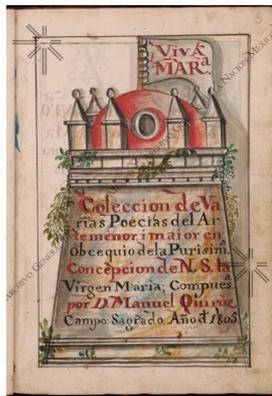 5
VIVA
MARa.
Coleccion de Va
rias Poecias del Ar
te menor, i maior en
Obcequio de la Purisim.
Concepcion de N. S. la
Virgen Maria; Compuesa.
por D. Manuel Quiroz
Campo Sagrado. Año d 1805